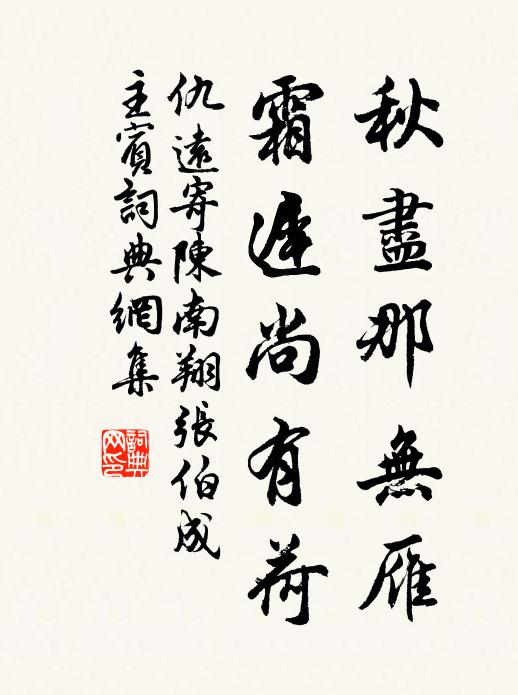 秋盡那無雁
霜遲尚有荷
仇遠寄陳南翔張伯成
主賓詞典網集
詞典网印